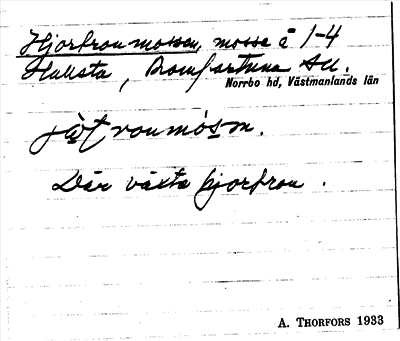 Hjortronmossen, mosse å 1-4
Hallsta, Romfartuna sn.
Norrbo hd, Västmanlands län
Där växte hjortron.
A. THORFORS 1933